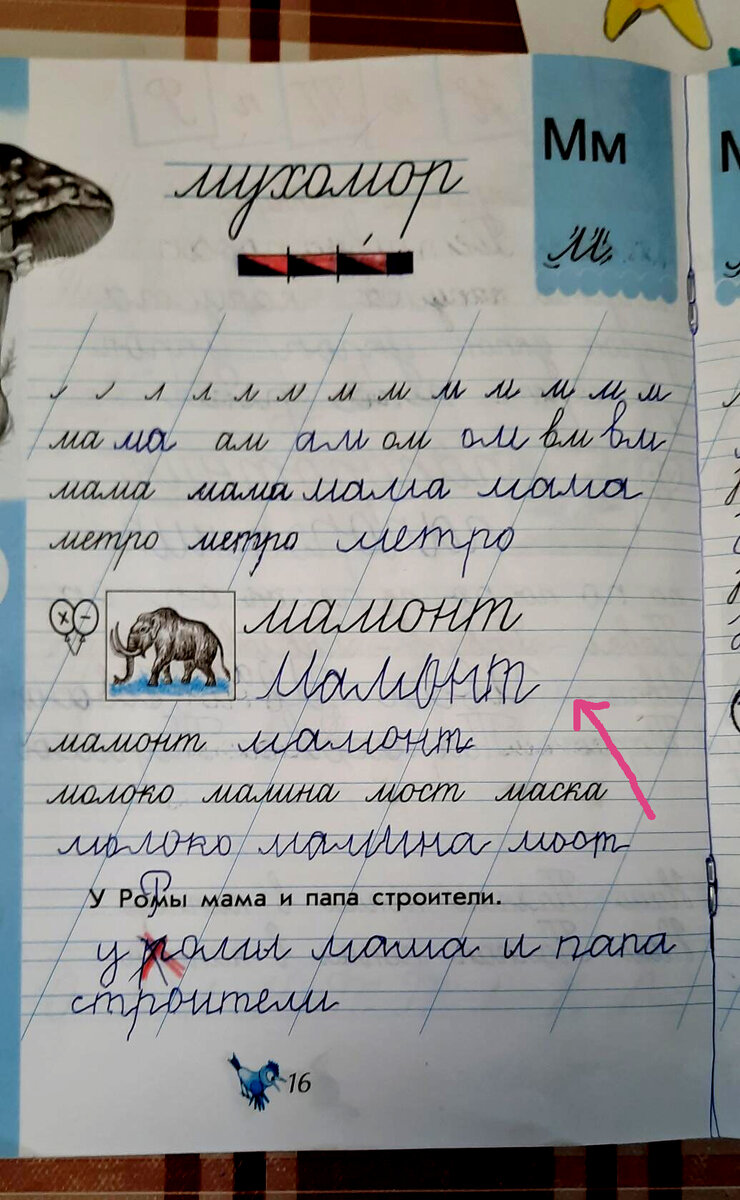 мухомор
Мм
м
л л л м м м м м м м
ма ма ам ам ом ом вм вм
мама мама мама мама
метро метро метро
× −
мамонт
мамонт
мамонт мамонт
молоко малина мост маска
молоко малина мост
У Ромы мама и папа строители.
Р
у ромы мама и папа
строители
16